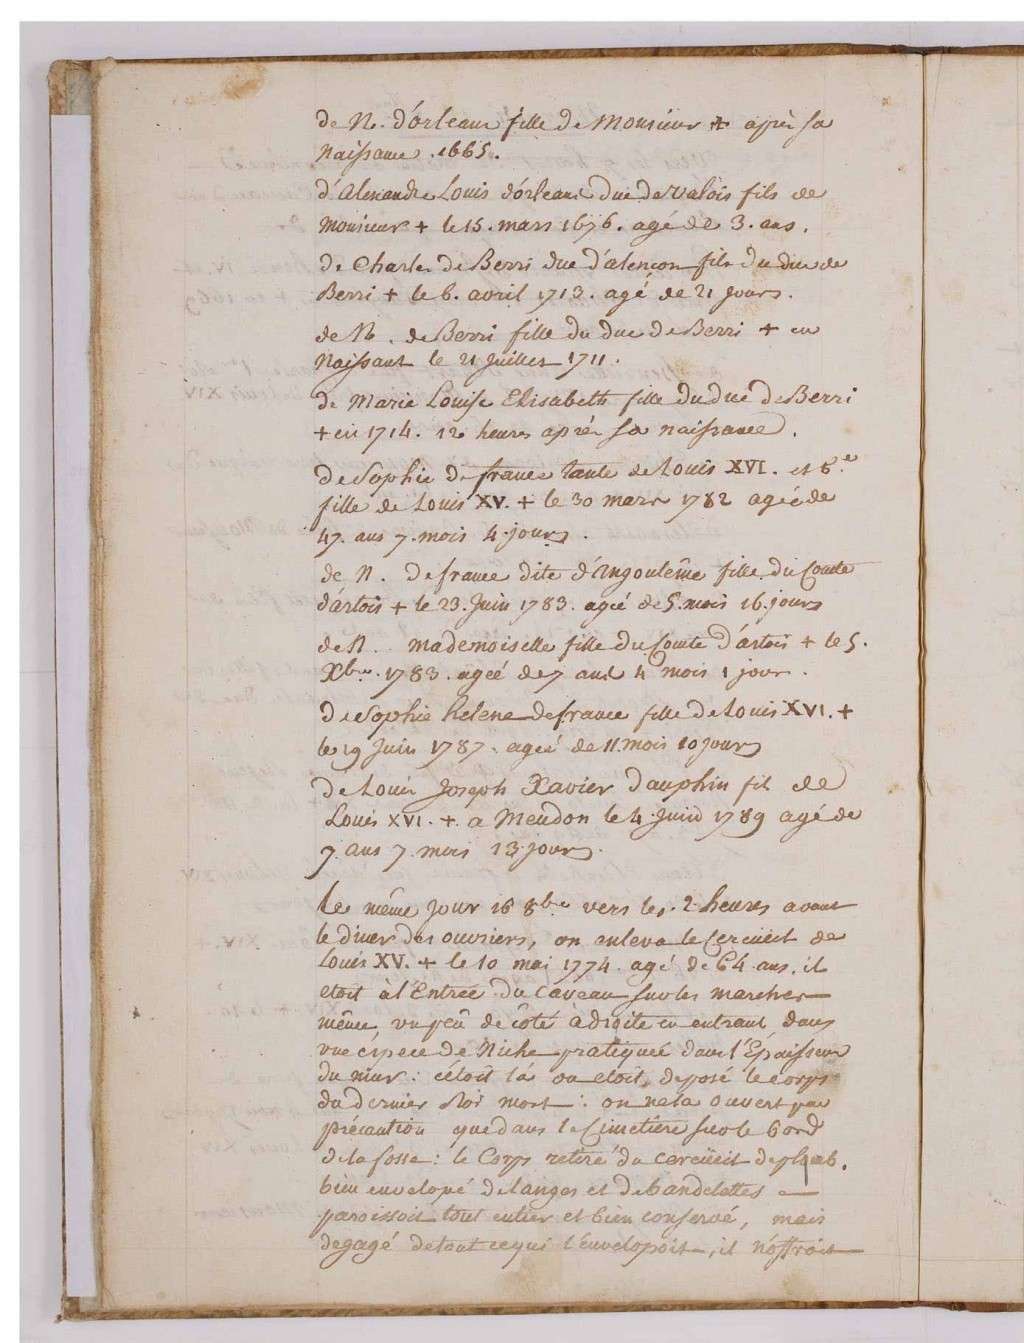 de N. d'orleans fille de Monsieur + après sa
Naissance .1665.
d'Alexandre Louis d'orleans duc de valois fils de
Monsieur + le 15. mars 1676. agé de 3. ans.
de Charles de Berri duc d'alençon fils du duc de
Berri + le 6. avril 1713. agé de 21 jours.
de N. de Berri fille du duc de Berri + en
Naissant le 21 Juillet 1711.
de Marie Louise Elisabeth fille du duc de Berri
+ en 1714. 12 heures après sa naissance.
de Sophie de france tante de Louis XVI. et 6.e
fille de Louis XV. + le 30 mars 1782 agée de
47. ans 7. mois 4. jours.
de N. de france dite d'angoulême fille du Comte
d'artois + le 23. Juin 1783. agée de 5. mois 16. jours
de N. mademoiselle fille du Comte d'artois + le 5.
Xbre. 1783. agée de 7 ans 4 mois 1 jour.
de Sophie helene de france fille de Louis XVI. +
le 19 Juin 1787. agée de 11. mois 10 jours
de Louis Joseph Xavier Dauphin fils de
Louis XVI. +. a Meudon le 4. Juin 1789 agé de
7. ans 7. mois 13. jours.
Le même jour 16 8bre vers les 2 heures avant
le diner des ouvriers, on enleva le Cercueil de
Louis XV. + le 10 mai 1774. agé de 64 ans. il
etoit à l'Entrée du Caveau sur les marches
même, un peu de côté à droite en entrant dans
une espece de Niche pratiquée dans l'Épaisseur
du mur: c'étoit là ou etoit, deposé le corps
du dernier Roi mort: on ne la ouvert par
précaution que dans le Cimetière sur le bord
de la fosse: le Corps retiré du cercueil de plomb.
bien envelopé de langes et de bandelettes
paroissoit tout entier et bien conservé, mais
degagé de tout ce qui l'envelopoit, il n'offroit